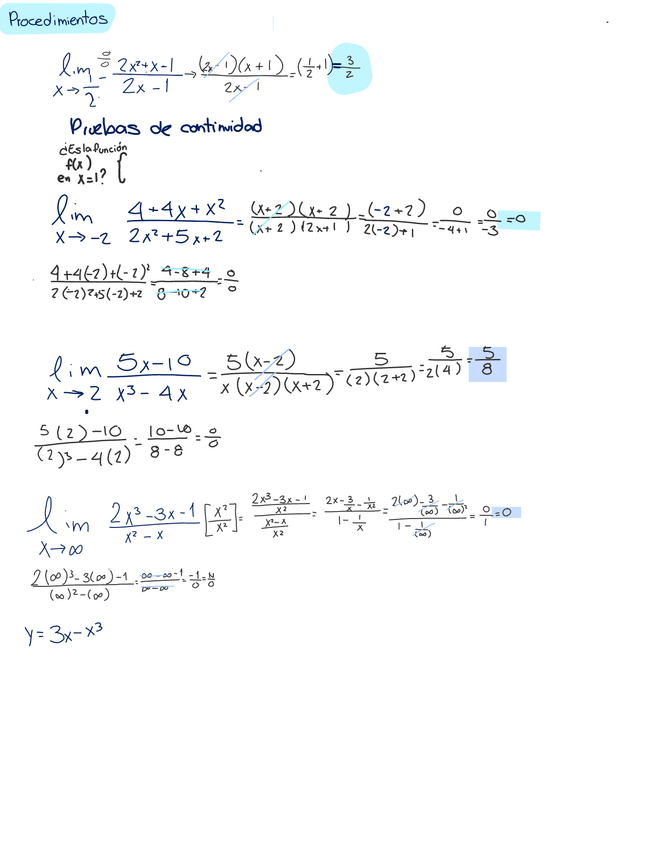 Procedimientos
lim x→1/2 0/0 (2x²+x-1)/(2x-1) → (2x-1)(x+1)/(2x-1) = (1/2+1) = 3/2
Pruebas de continuidad
¿Es la función
f(x) {
en x=1?
lim x→-2 (4+4x+x²)/(2x²+5x+2) = (x+2)(x+2)/(x+2)(2x+1) = (-2+2)/(2(-2)+1) = 0/(-4+1) = 0/-3 = 0
(4+4(-2)+(-2)²)/(2(-2)²+5(-2)+2) = (4-8+4)/(8-10+2) = 0/0
lim x→2 (5x-10)/(x³-4x) = 5(x-2)/(x(x-2)(x+2)) = 5/((2)(2+2)) = 5/(2(4)) = 5/8
(5(2)-10)/((2)³-4(2)) = (10-10)/(8-8) = 0/0
lim x→∞ (2x³-3x-1)/(x²-x) [x²/x²] = ((2x³-3x-1)/x²)/((x²-x)/x²) = (2x-3/x-1/x²)/(1-1/x) = (2(∞)-3/(∞)-1/(∞)²)/(1-1/(∞)) = 0/1 = 0
(2(∞)³-3(∞)-1)/((∞)²-(∞)) = (∞-∞-1)/(∞-∞) = -1/0 = N/0
y = 3x-x³